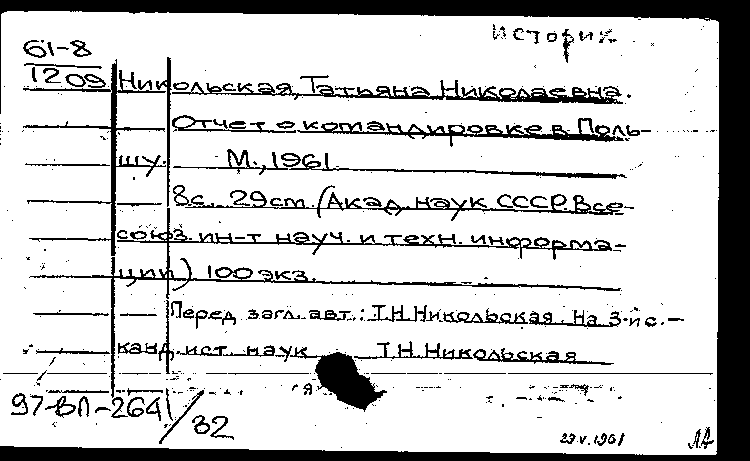 Историк
61-8
1209 Никольская, Татьяна Николаевна.
Отчет о командировке в Поль-
шу. М., 1961
8с. 29см. (Акад. наук СССР. Все-
союз. ин-т науч. и техн. информа-
ции). 100 экз.
Перед загл. авт.: Т.Н. Никольская. На 3-й с. —
канд. ист. наук Т.Н. Никольская
97-ВЛ-2641/32
29.V.1961